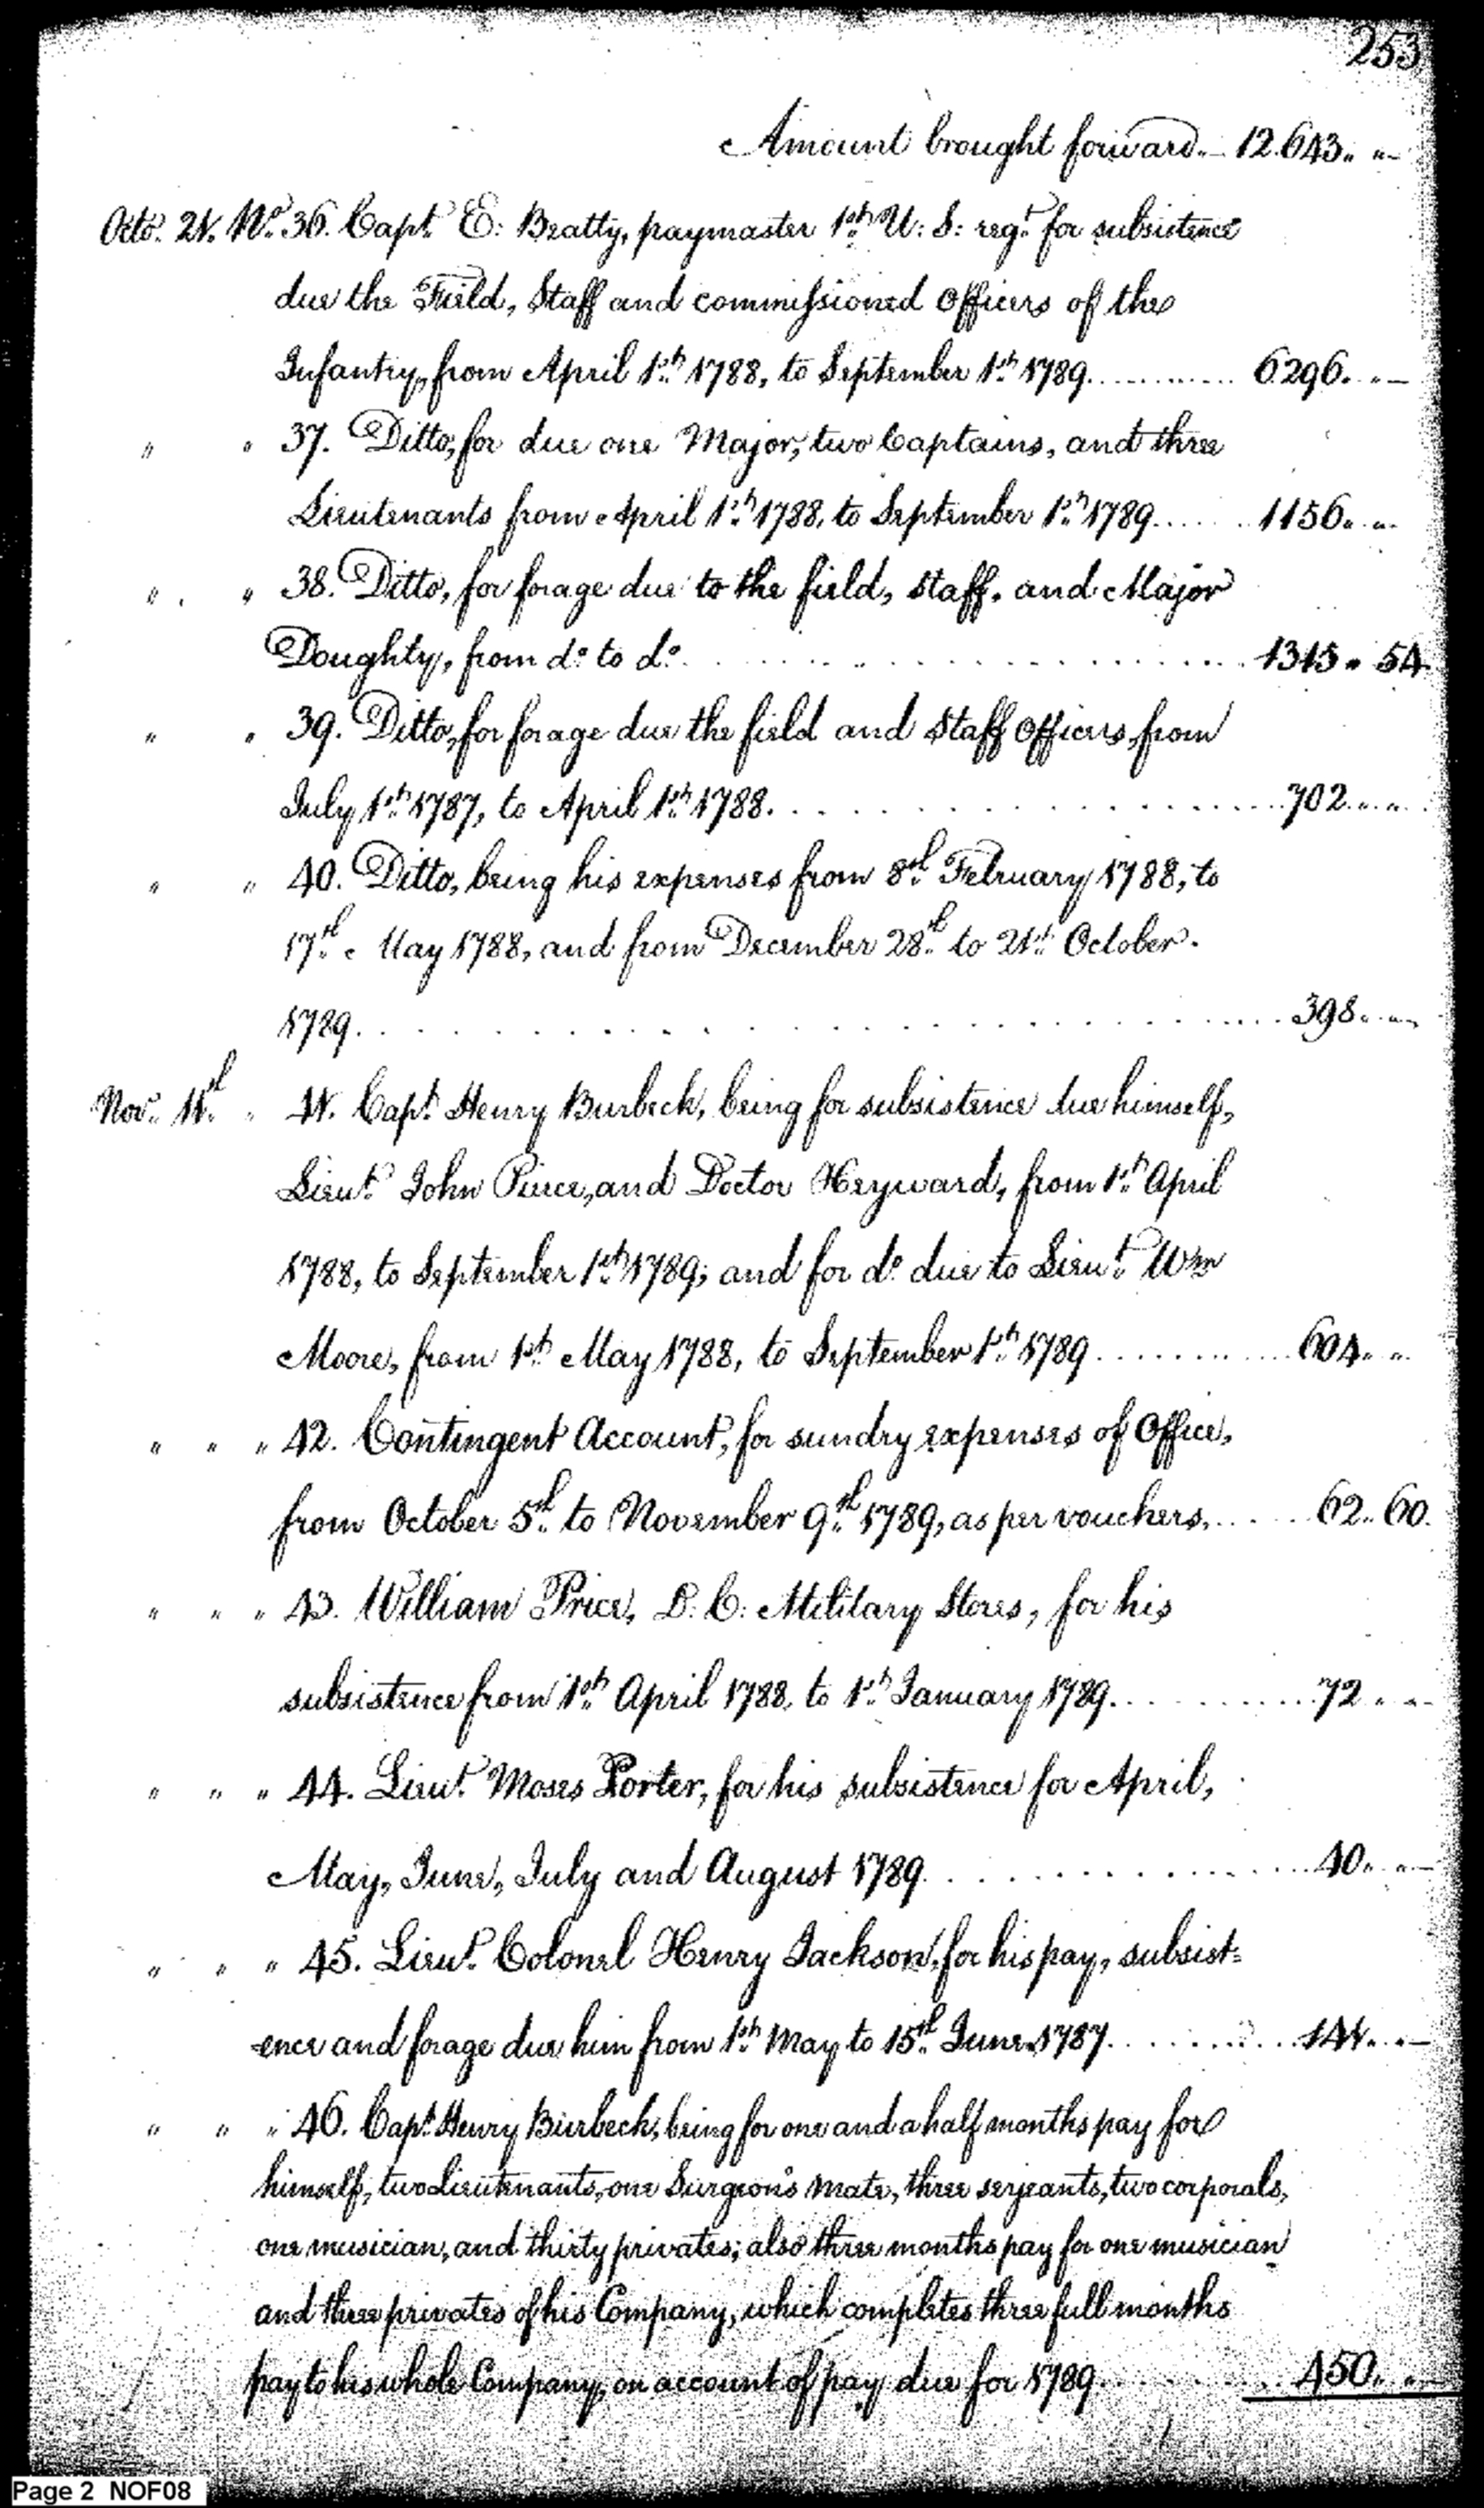 253
Amount brought forward. 12.643. "
Octo. 21. No. 36. Capt. E: Beatty, paymaster 1st U: S: regt. for subsistence
due the Field, Staff and commissioned Officers of the
Infantry, from April 1st 1788, to September 1st 1789............ 6296. "
" " 37. Ditto, for due one Major, two Captains, and three
Lieutenants from April 1st 1788, to September 1st 1789....... 1156. "
" " 38. Ditto, for forage due to the field, staff, and Major
Doughty, from do. to do. .................. 1315 " 54.
" " 39. Ditto, for forage due the field and Staff Officers, from
July 1st 1787, to April 1st 1788. .................. 702. "
" " 40. Ditto, being his expenses from 8th February 1788, to
17th May 1788, and from December 28th to 21st October.
1789. .................. 398. "
Novr. 11th " 41. Capt. Henry Burbeck, being for subsistence due himself,
Lieut. John Pierce, and Doctor Heyward, from 1st April
1788, to September 1st 1789; and for do. due to Lieut. Wm
Moore, from 1st May 1788, to September 1st 1789............ 604. "
" " " 42. Contingent Account, for sundry expenses of Office,
from October 5th to November 9th 1789, as per vouchers....... 62. 60.
" " " 43. William Price, D: C: Military Stores, for his
subsistence from 1st April 1788, to 1st January 1789............ 72. "
" " " 44. Lieut. Moses Porter, for his subsistence for April,
May, June, July and August 1789. .................. 40. "
" " " 45. Lieut. Colonel Henry Jackson, for his pay, subsist=
ence and forage due him from 1st May to 15th June 1787............ 141. "
" " " 46. Capt. Henry Burbeck, being for one and a half months pay for
himself, two Lieutenants, one Surgeon's Mate, three serjeants, two corporals,
one musician, and thirty privates; also three months pay for one musician
and three privates of his Company, which completes three full months
pay to his whole Company, on account of pay due for 1789............ 450. "
Page 2 NOF08